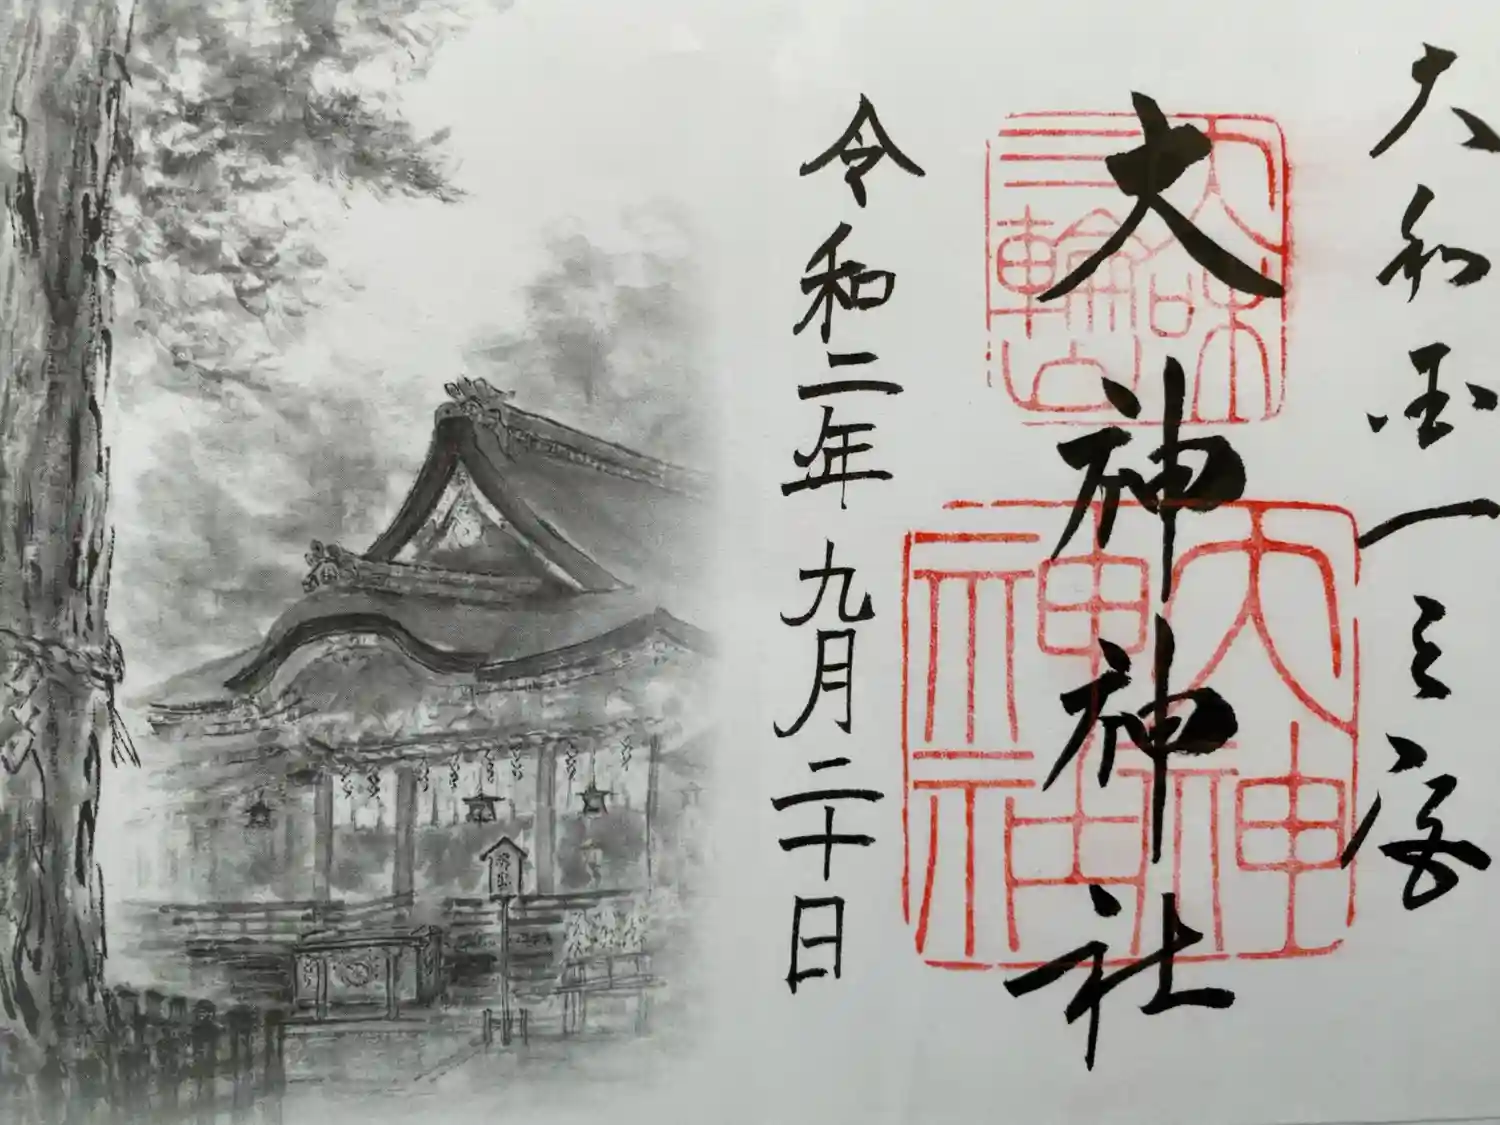 大和国一之宮
大神神社
大和
三輪山
大神
神社
令和二年九月二十日